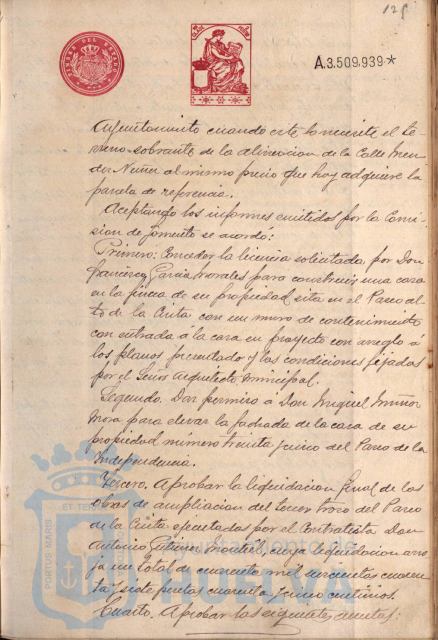 125
TIMBRE DEL ESTADO
A.3.509.939*
Ayuntamiento cuando este lo necesite el te-
rreno sobrante de la alineacion de la Calle Men-
dez Nuñez al mismo precio que hoy adquiere la
parcela de referencia.
Aceptando los informes emitidos por la Comi-
sion de fomento se acordó:
Primero: Conceder la licencia solicitada por Don
Francisco Garcia Morales para construir una casa
en la finca de su propiedad sita en el Paseo al-
to de la Cinta con un muro de contenimiento
con entrada á la casa en proyecto con arreglo á
los planos presentados y las condiciones fijadas
por el Señor Arquitecto Municipal.
Segundo. Dar permiso á Don Miguel Muñoz
Mora para elevar la fachada de la casa de su
propiedad numero treinta y cinco del Paseo de la
Independencia.
Tercero. Aprobar la liquidacion final de las
obras de ampliacion del tercer trozo del Paseo
de la Cinta ejecutados por el Contratista Don
Antonio Gutierrez Montiel, cuya liquidacion arro-
ja un total de cuarenta mil cuaren-
ta y siete pesetas cuarenta y cinco centimos.
Cuarto. Aprobar las siguientes cuentas:
PORTUS MARIS
ET TERRAE
Ayuntamiento de
HUELVA